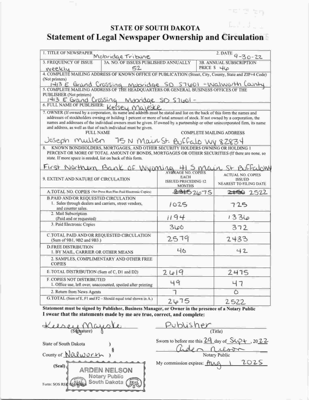 STATE OF SOUTH DAKOTA
Statement of Legal Newspaper Ownership and Circulation
1. TITLE OF NEWSPAPER Mobridge Tribune
2. DATE 9-30-22
3. FREQUENCY OF ISSUE Weekly
3A. NO. OF ISSUES PUBLISHED ANNUALLY 52
3B. ANNUAL SUBSCRIPTION PRICE $ 46
4. COMPLETE MAILING ADDRESS OF KNOWN OFFICE OF PUBLICATION (Street, City, County, State and ZIP+4 Code) (Not printers)
1413 E Grand Crossing Mobridge SD 57601 - Walworth County
5. COMPLETE MAILING ADDRESS OF THE HEADQUARTERS OR GENERAL BUSINESS OFFICES OF THE PUBLISHER (Not printers)
1413 E Grand Crossing Mobridge SD 57601
6. FULL NAME OF PUBLISHER: Kelsey Majeske
7. OWNER (If owned by a corporation, its name and address must be stated and list on the back of this form the names and addresses of stockholders owning or holding 1 percent or more of total amount of stock. If not owned by a corporation, the names and addresses of the individual owners must be given. If owned by a partnership or other unincorporated firm, its name and address, as well as that of each individual must be given.
FULL NAME COMPLETE MAILING ADDRESS
Joseph Mullen 75 N Main St Buffalo WY 82834
8. KNOWN BONDHOLDERS, MORTGAGES, AND OTHER SECURITY HOLDERS OWNING OR HOLDING 1 PERCENT OR MORE OF TOTAL AMOUNT OF BONDS, MORTGAGES OR OTHER SECURITIES (If there are none, so state. If more space is needed, list on back of this form).
First Northern Bank of Wyoming 141 S Main St. Buffalo WY
9. EXTENT AND NATURE OF CIRCULATION
AVERAGE NO. COPIES EACH ISSUED PRECEDING 12 MONTHS
ACTUAL NO. COPIES ISSUED NEAREST TO FILING DATE
A. TOTAL NO. COPIES (Net Press Run Plus Paid Electronic Copies) 2675 2522
B. PAID AND/OR REQUESTED CIRCULATION
1. Sales through dealers and carriers, street vendors, and counter sales. 1025 725
2. Mail Subscription (Paid and or requested) 1194 1336
3. Paid Electronic Copies 360 372
C. TOTAL PAID AND/OR REQUESTED CIRCULATION (Sum of 9B1, 9B2 and 9B3) 2579 2433
D. FREE DISTRIBUTION
1. BY MAIL, CARRIER OR OTHER MEANS 40 42
2. SAMPLES, COMPLIMENTARY AND OTHER FREE COPIES
E. TOTAL DISTRIBUTION (Sum of C, D1 and D2) 2619 2475
F. COPIES NOT DISTRIBUTED
1. Office use, left over, unaccounted, spoiled after printing 49 47
2. Return from News Agents 7 0
G. TOTAL (Sum of E, F1 and F2 - Should equal total shown in A.) 2675 2522
Statement must be signed by Publisher, Business Manager, or Owner in the presence of a Notary Public
I swear that the statements made by me are true, correct, and complete:
Kelsey Majeske Publisher
(Signature) (Title)
State of South Dakota )
Sworn to before me this 29 day of Sept, 2022
County of Walworth )
Arden Nelson
Notary Public
(Seal)
ARDEN NELSON
Notary Public
South Dakota
My commission expires: Aug 1 2025